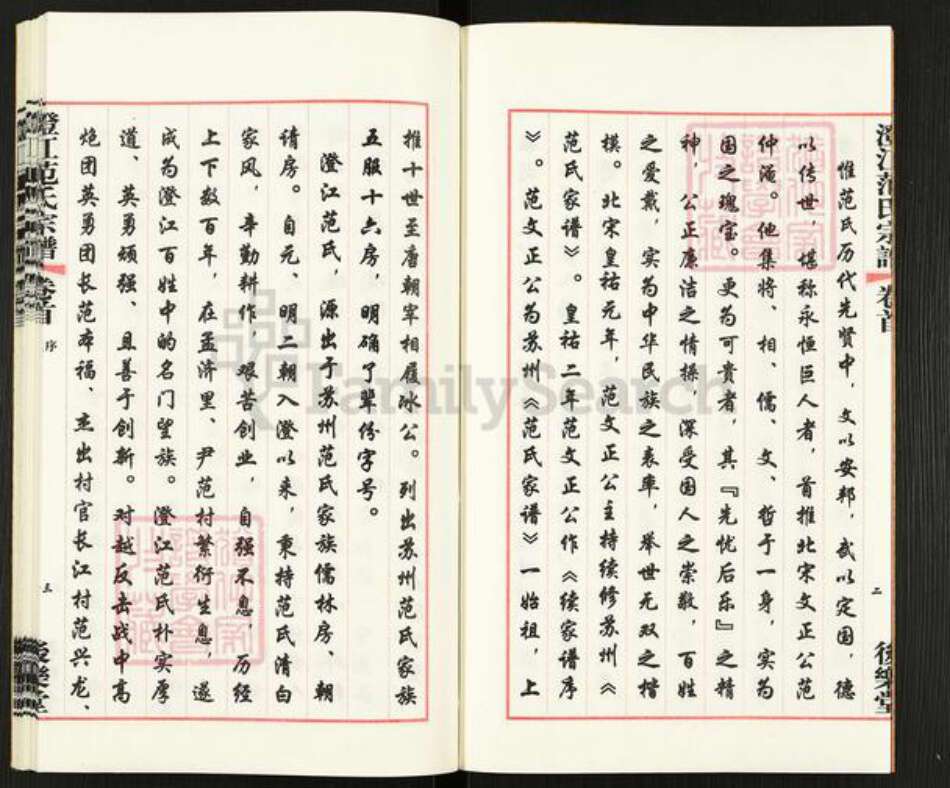 澄江范氏宗譜 卷首
二
後樂堂
惟范氏历代先贤中，文以安邦，武以定国，德
以传世，堪称永恒巨人者，首推北宋文正公范
仲淹。他集将、相、儒、文、哲于一身，实为
国之瑰宝。更为可贵者，其『先忧后乐』之精
神，公正廉洁之情操，深受国人之崇敬，百姓
之爱戴，实为中华民族之表率，举世无双之楷
模。北宋皇祐元年，范文正公主持续修苏州《
范氏家谱》。皇祐二年范文正公作《续家谱序
》。范文正公为苏州《范氏家谱》一始祖，上
推十世至唐朝宰相履冰公。列出苏州范氏家族
五服十六房，明确了辈份字号。
澄江范氏，源出于苏州范氏家族儒林房、朝
请房。自元、明二朝入澄以来，秉持范氏清白
家风，辛勤耕作，艰苦创业，自强不息，历经
上下数百年，在孟济里、尹范村繁衍生息，遂
成为澄江百姓中的名门望族。澄江范氏朴实厚
道、英勇顽强、且善于创新。对越反击战中高
炮团英勇团长范本福、杰出村官长江村范兴龙、
澄江范氏宗譜 卷首
序
三
後樂堂
FamilySearch